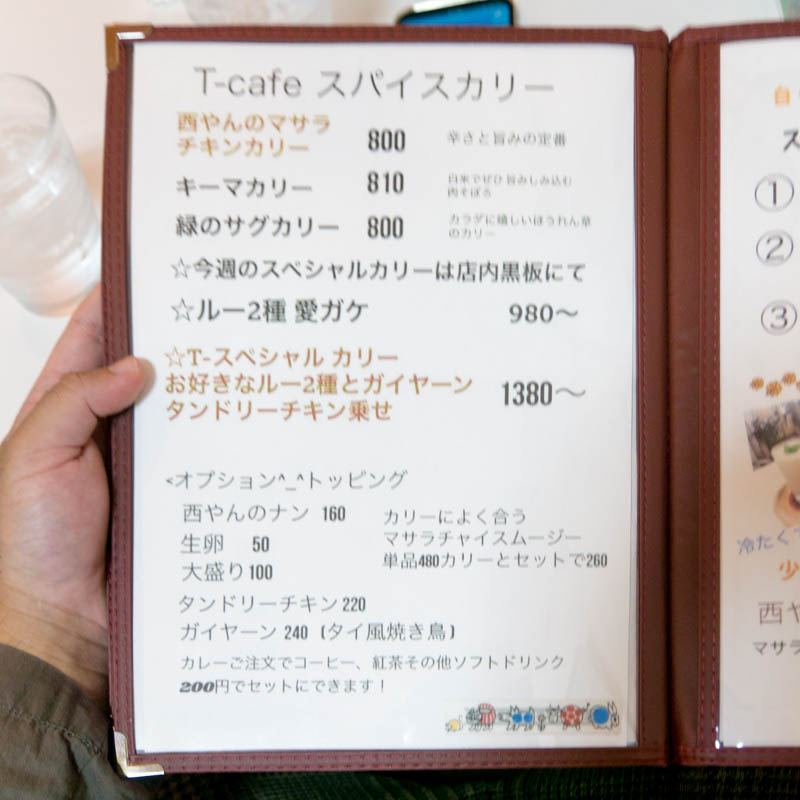 T-cafe スパイスカリー
西やんのマサラ
チキンカリー 800 辛さと旨みの定番
キーマカリー 810 白米でぜひ旨みしみ込む
肉そぼろ
緑のサグカリー 800 カラダに嬉しいほうれん草
のカリー
☆今週のスペシャルカリーは店内黒板にて
☆ルー2種 愛ガケ 980〜
☆T-スペシャル カリー
お好きなルー2種とガイヤーン 1380〜
タンドリーチキン乗せ
<オプション^_^トッピング
西やんのナン 160
生卵 50
大盛り100
カリーによく合う
マサラチャイスムージー
単品480カリーとセットで260
タンドリーチキン220
ガイヤーン 240 (タイ風焼き鳥)
カレーご注文でコーヒー、紅茶その他ソフトドリンク
200円でセットにできます!
①
②
③
冷たく
少
西や
マサラ